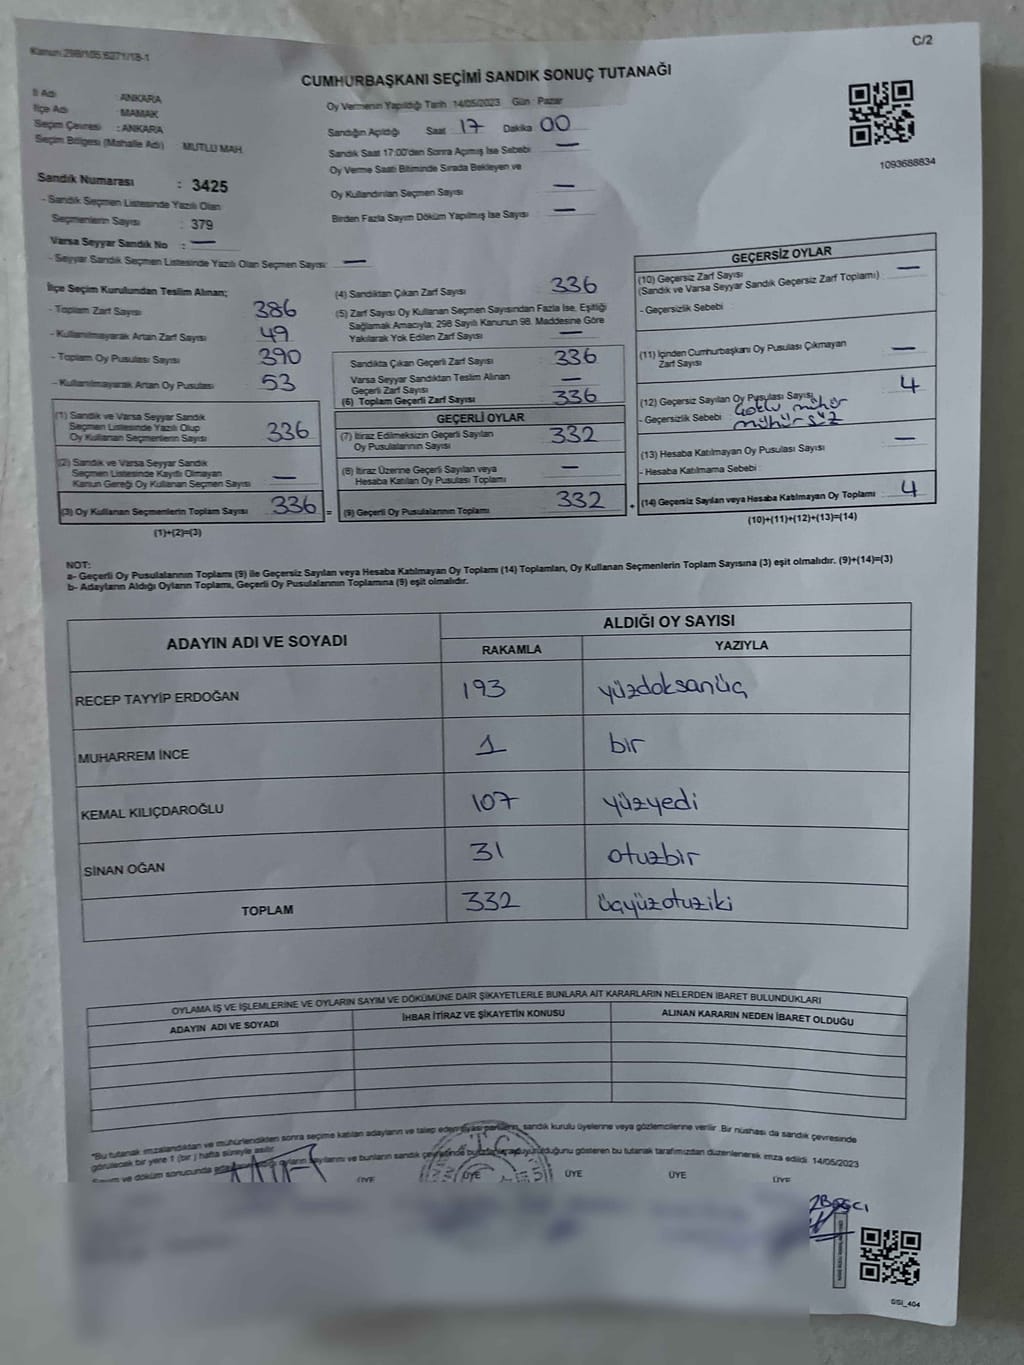 Kanun:298/105,6271/18-1
C/2
CUMHURBAŞKANI SEÇİMİ SANDIK SONUÇ TUTANAĞI
İl Adı : ANKARA
İlçe Adı : MAMAK
Seçim Çevresi : ANKARA
Seçim Bölgesi (Mahalle Adı) MUTLU MAH.
Sandık Numarası : 3425
- Sandık Seçmen Listesinde Yazılı Olan
Seçmenlerin Sayısı : 379
Varsa Seyyar Sandık No : —
- Seyyar Sandık Seçmen Listesinde Yazılı Olan Seçmen Sayısı: —
Oy Vermenin Yapıldığı Tarih 14/05/2023 Gün : Pazar
Sandığın Açıldığı Saat 17 Dakika 00
Sandık Saat 17:00'den Sonra Açımış İse Sebebi —
Oy Verme Saati Bitiminde Sırada Bekleyen ve
Oy Kullandırılan Seçmen Sayısı —
Birden Fazla Sayım Döküm Yapılmış İse Sayısı —
1093688834
İlçe Seçim Kurulundan Teslim Alınan;
- Toplam Zarf Sayısı 386
- Kullanılmayarak Artan Zarf Sayısı 49
- Toplam Oy Pusulası Sayısı 390
- Kullanılmayarak Artan Oy Pusulası 53
(1) Sandık ve Varsa Seyyar Sandık
Seçmen Listesinde Yazılı Olup
Oy Kullanan Seçmenlerin Sayısı 336
(2) Sandık ve Varsa Seyyar Sandık
Seçmen Listesinde Kayıtlı Olmayan
Kanun Gereği Oy Kullanan Seçmen Sayısı —
(3) Oy Kullanan Seçmenlerin Toplam Sayısı 336 =
(1)+(2)=(3)
(4) Sandıktan Çıkan Zarf Sayısı 336
(5) Zarf Sayısı Oy Kullanan Seçmen Sayısından Fazla İse, Eşitliği
Sağlamak Amacıyla, 298 Sayılı Kanunun 98. Maddesine Göre
Yakılarak Yok Edilen Zarf Sayısı —
Sandıkta Çıkan Geçerli Zarf Sayısı 336
Varsa Seyyar Sandıktan Teslim Alınan
Geçerli Zarf Sayısı —
(6) Toplam Geçerli Zarf Sayısı 336
GEÇERLİ OYLAR
(7) İtiraz Edilmeksizin Geçerli Sayılan
Oy Pusulalarının Sayısı 332
(8) İtiraz Üzerine Geçerli Sayılan veya
Hesaba Katılan Oy Pusulası Toplamı —
(9) Geçerli Oy Pusulalarının Toplamı 332 +
GEÇERSİZ OYLAR
(10) Geçersiz Zarf Sayısı —
(Sandık ve Varsa Seyyar Sandık Geçersiz Zarf Toplamı)
- Geçersizlik Sebebi :
(11) İçinden Cumhurbaşkanı Oy Pusulası Çıkmayan
Zarf Sayısı —
(12) Geçersiz Sayılan Oy Pusulası Sayısı 4
- Geçersizlik Sebebi mühür
mühürsüz
(13) Hesaba Katılmayan Oy Pusulası Sayısı —
- Hesaba Katılmama Sebebi :
(14) Geçersiz Sayılan veya Hesaba Katılmayan Oy Toplamı 4
(10)+(11)+(12)+(13)=(14)
NOT:
a- Geçerli Oy Pusulalarının Toplamı (9) ile Geçersiz Sayılan veya Hesaba Katılmayan Oy Toplamı (14) Toplamları, Oy Kullanan Seçmenlerin Toplam Sayısına (3) eşit olmalıdır. (9)+(14)=(3)
b- Adayların Aldığı Oyların Toplamı, Geçerli Oy Pusulalarının Toplamına (9) eşit olmalıdır.
ADAYIN ADI VE SOYADI ALDIĞI OY SAYISI
RAKAMLA YAZIYLA
RECEP TAYYİP ERDOĞAN 193 yüzdoksanüç
MUHARREM İNCE 1 bir
KEMAL KILIÇDAROĞLU 107 yüzyedi
SİNAN OĞAN 31 otuzbir
TOPLAM 332 üçyüzotuziki
OYLAMA İŞ VE İŞLEMLERİNE VE OYLARIN SAYIM VE DÖKÜMÜNE DAİR ŞİKAYETLERLE BUNLARA AİT KARARLARIN NELERDEN İBARET BULUNDUKLARI
ADAYIN ADI VE SOYADI İHBAR İTİRAZ VE ŞİKAYETİN KONUSU ALINAN KARARIN NEDEN İBARET OLDUĞU
*Bu tutanak imzalandıktan ve mühürlendikten sonra seçime katılan adayların ve talep eden siyasi partilerin, sandık kurulu üyelerine veya gözlemcilerine verilir .Bir nüshası da sandık çevresinde
görülecek bir yere 1 (bir ) hafta süreyle asılır.
Sayım ve döküm sonucunda oyların sayılarını ve bunların sandık çevresinde duyurulduğunu gösteren bu tutanak tarafımızdan düzenlenerek imza edildi. 14/05/2023
ÜYE ÜYE ÜYE ÜYE ÜYE
GSI_404